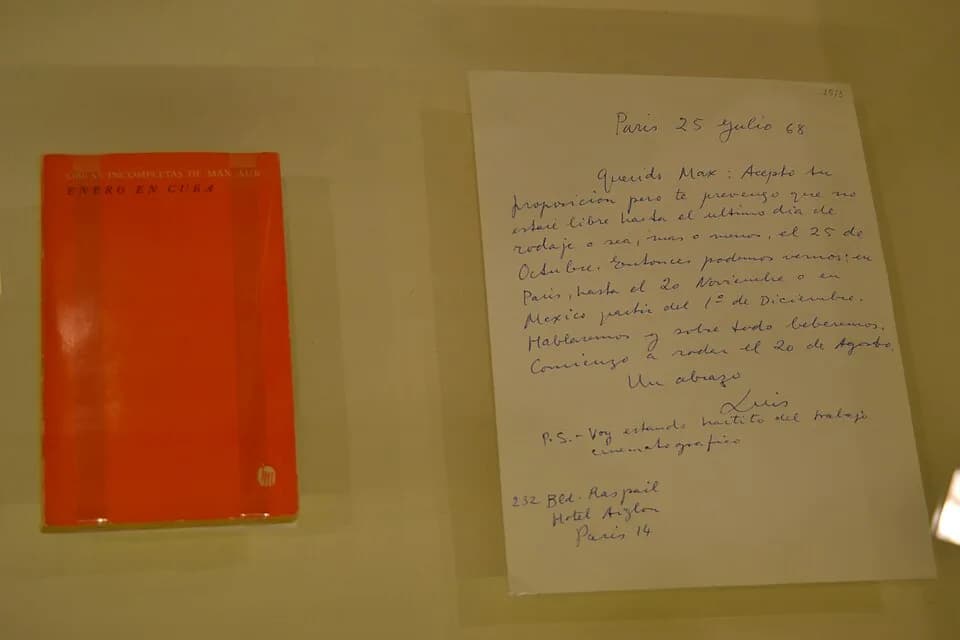 OBRAS INCOMPLETAS DE MAX AUB
ENERO EN CUBA
Paris 25 Julio 68
Querido Max: Acepto tu
proposicion pero te prevengo que no
estaré libre hasta el ultimo dia de
rodaje o sea, mas o menos, el 25 de
Octubre. Entonces podemos vernos: en
Paris, hasta el 20 Noviembre o en
Mexico partir del 1º de Diciembre.
Hablaremos y sobre todo beberemos.
Comienzo a rodar el 20 de Agosto.
Un abrazo
Luis
P.S.- Voy estando hartito del trabajo
cinematografico
232 Bld. Raspail
Hotel Aiglon
Paris 14